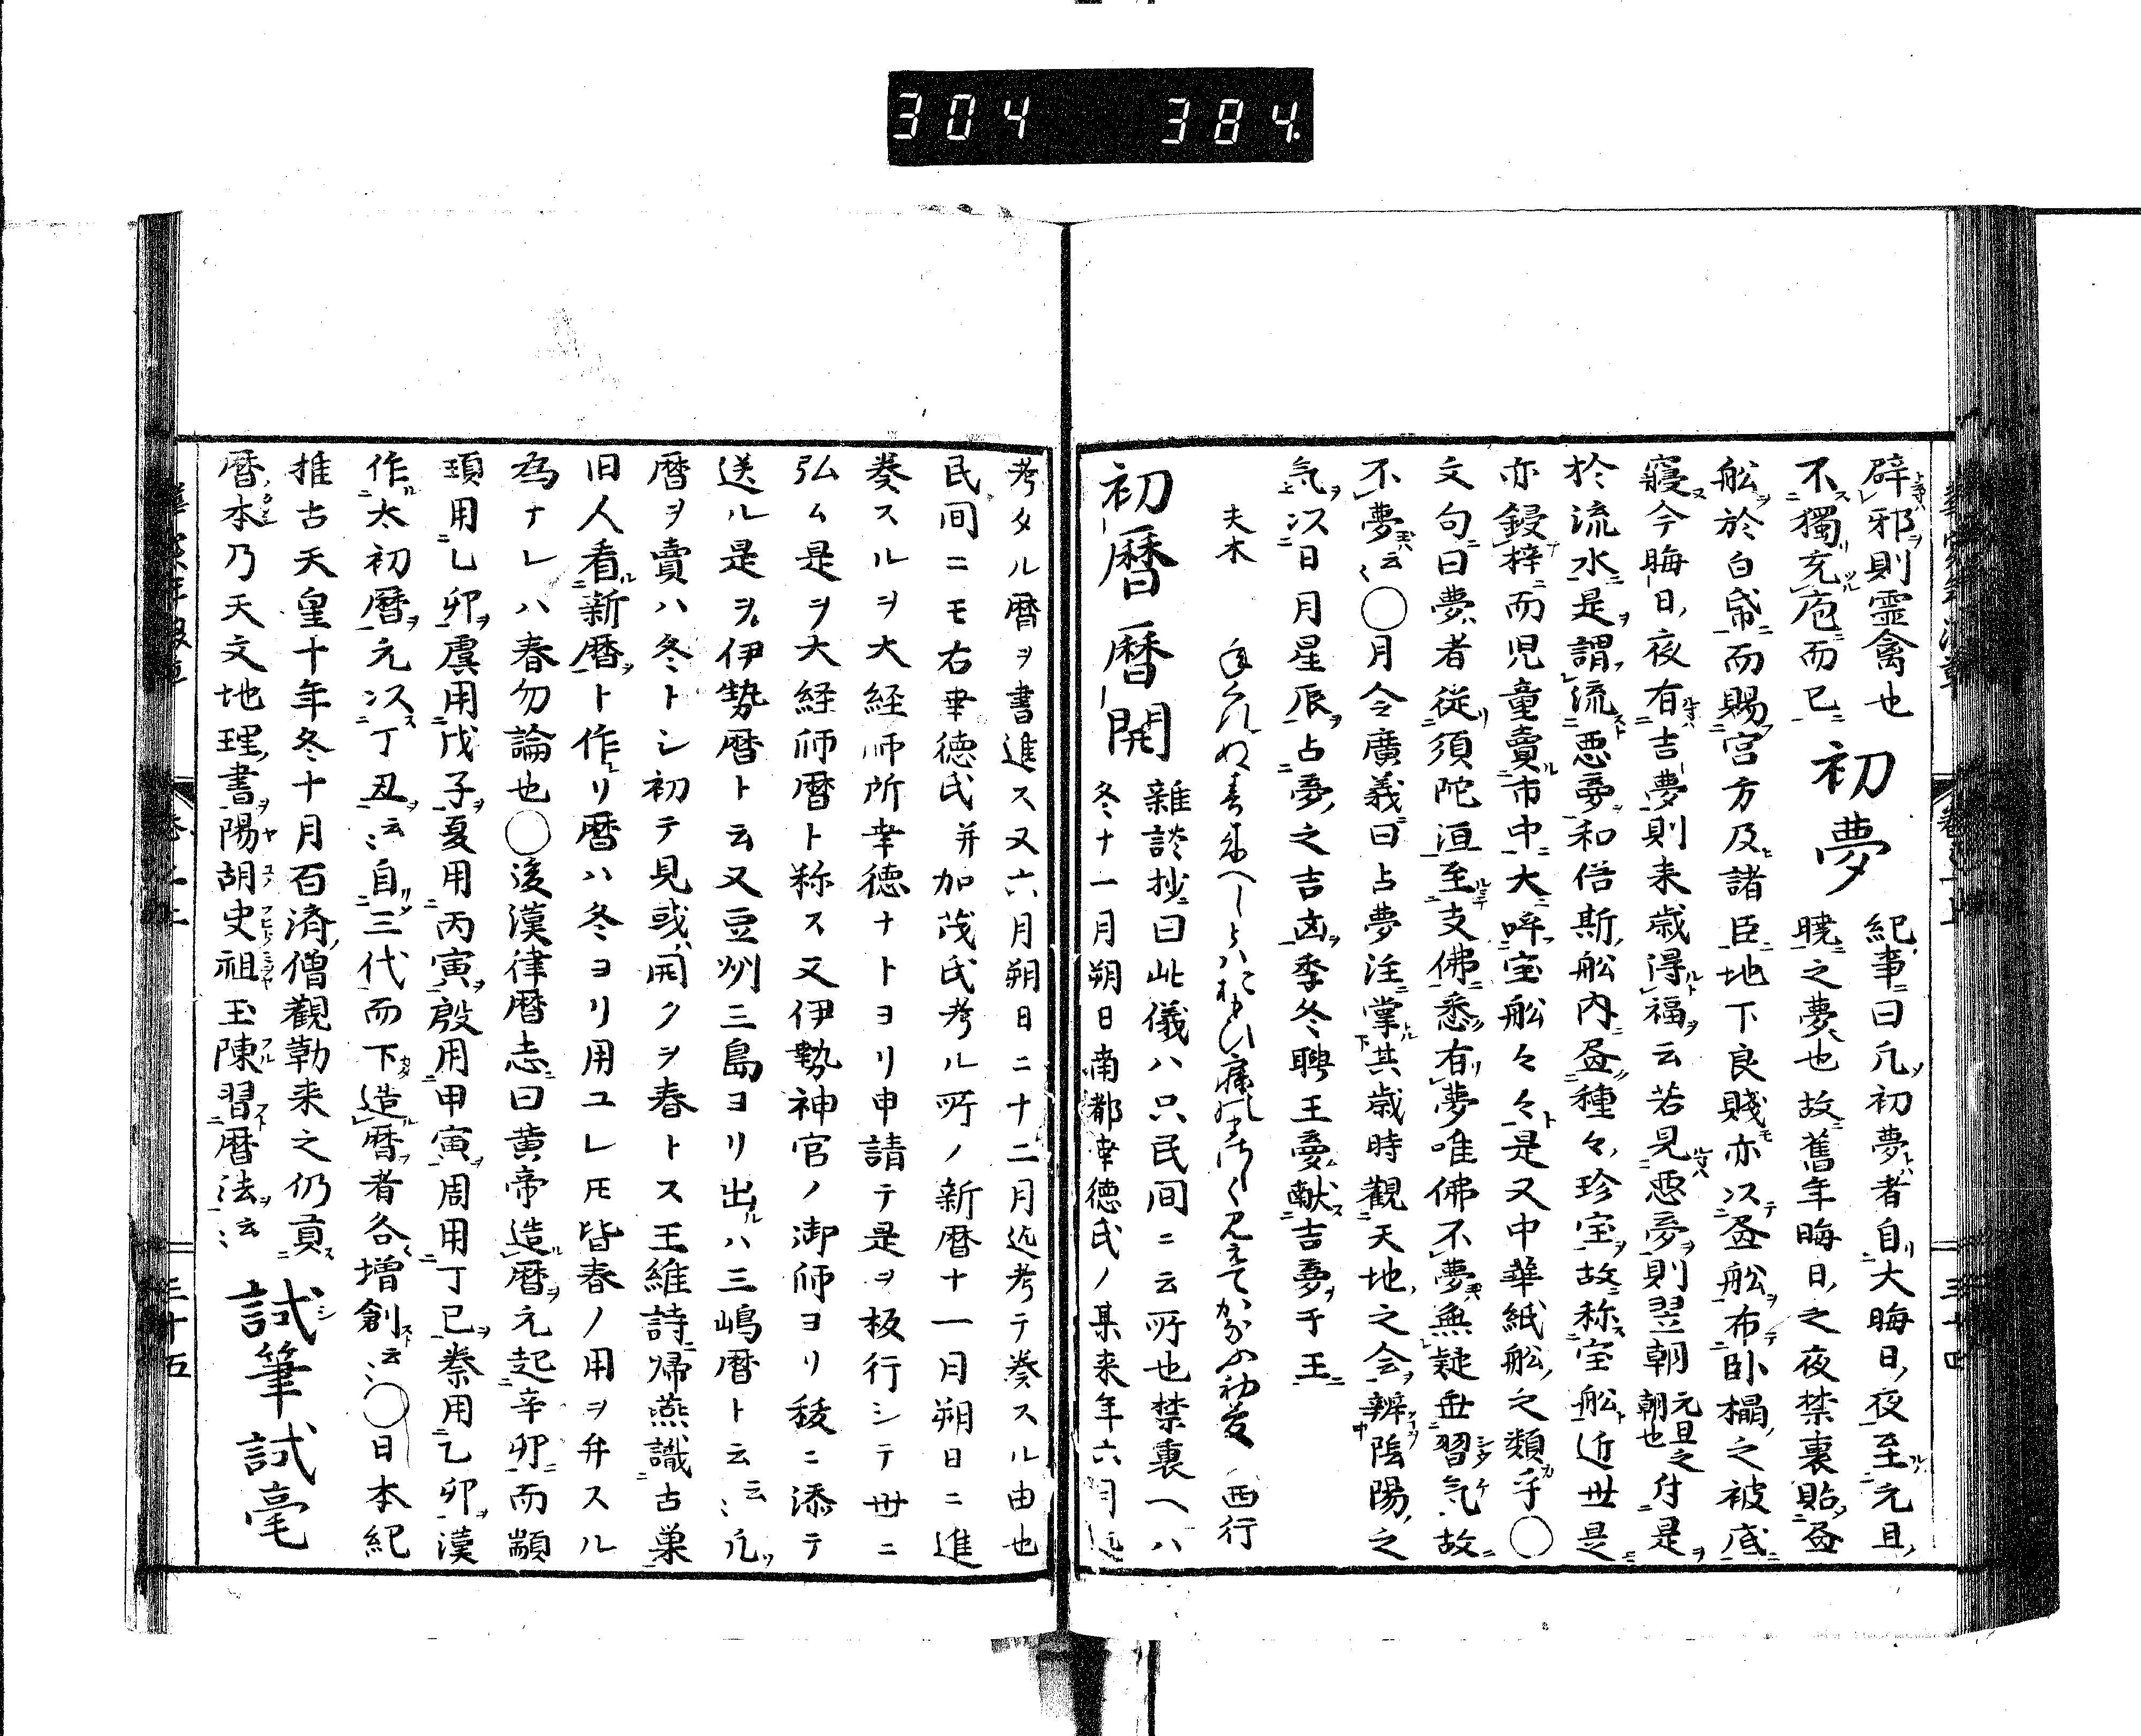 304 384.
辟邪則霊禽也
不獨充庖而已 初夢 紀事曰凡初夢者自大晦日夜至元旦
暁之夢也故舊年晦日之夜禁裏貽畫
舩於白帋而賜宮方及諸臣地下良賤亦以畫舩布卧榻之被底
寢今晦日夜有吉夢則来歳得福云若見悪夢則翌朝 元旦之朝也 付是
於流水是謂流悪夢和俗斯舩内畫種々珍宝故称宝舩近世是
亦鋟梓而児童賣市中大呼宝舩々々是又中華紙舩之類乎○
文句曰夢者従須陀洹至支佛悉有夢唯佛不夢無疑無習気故
不夢云々○月令廣義曰占夢注掌其歳時觀天地之会辨陰陽之
気以日月星辰占夢之吉凶季冬聘王夢献吉夢于王
夫木 年くれぬ春来へしとは 西行
初暦 暦開 雑談抄曰此儀ハ只民間ニ云所也禁裏ヘハ
冬十一月朔日南都幸徳氏ノ某来年六月迄
考タル暦ヲ書進ス又六月朔日ニ十二月迄考テ奏スル由也
民間ニモ右幸徳氏并加茂氏考ル所ノ新暦十一月朔日ニ進
奏スルヲ大経师所幸徳ナトヨリ申請テ是ヲ板行シテ世ニ
弘ム是ヲ大経师暦ト称ス又伊勢神官ノ御师ヨリ祓ニ添テ
送ル是ヲ伊勢暦ト云又豆州三島ヨリ出ルハ三嶋暦ト云云々凡
暦ヲ賣ハ冬トシ初テ見或開クヲ春トス王維詩帰燕識古巣
旧人看新暦ト作リ暦ハ冬ヨリ用ユレ𪜈皆春ノ用ヲ弁スル
為ナレハ春勿論也○後漢律暦志曰黄帝造暦元起辛卯而顓
頊用乙卯虞用戊子夏用丙寅殷用甲寅周用丁巳秦用乙卯漢
作太初暦元以丁丑云々自三代而下造暦者各増創云々○日本紀
推古天皇十年冬十月百済僧觀勒来之仍貢
暦本乃天文地理書陽胡史祖玉陳習暦法云々 試筆 試毫
三十五